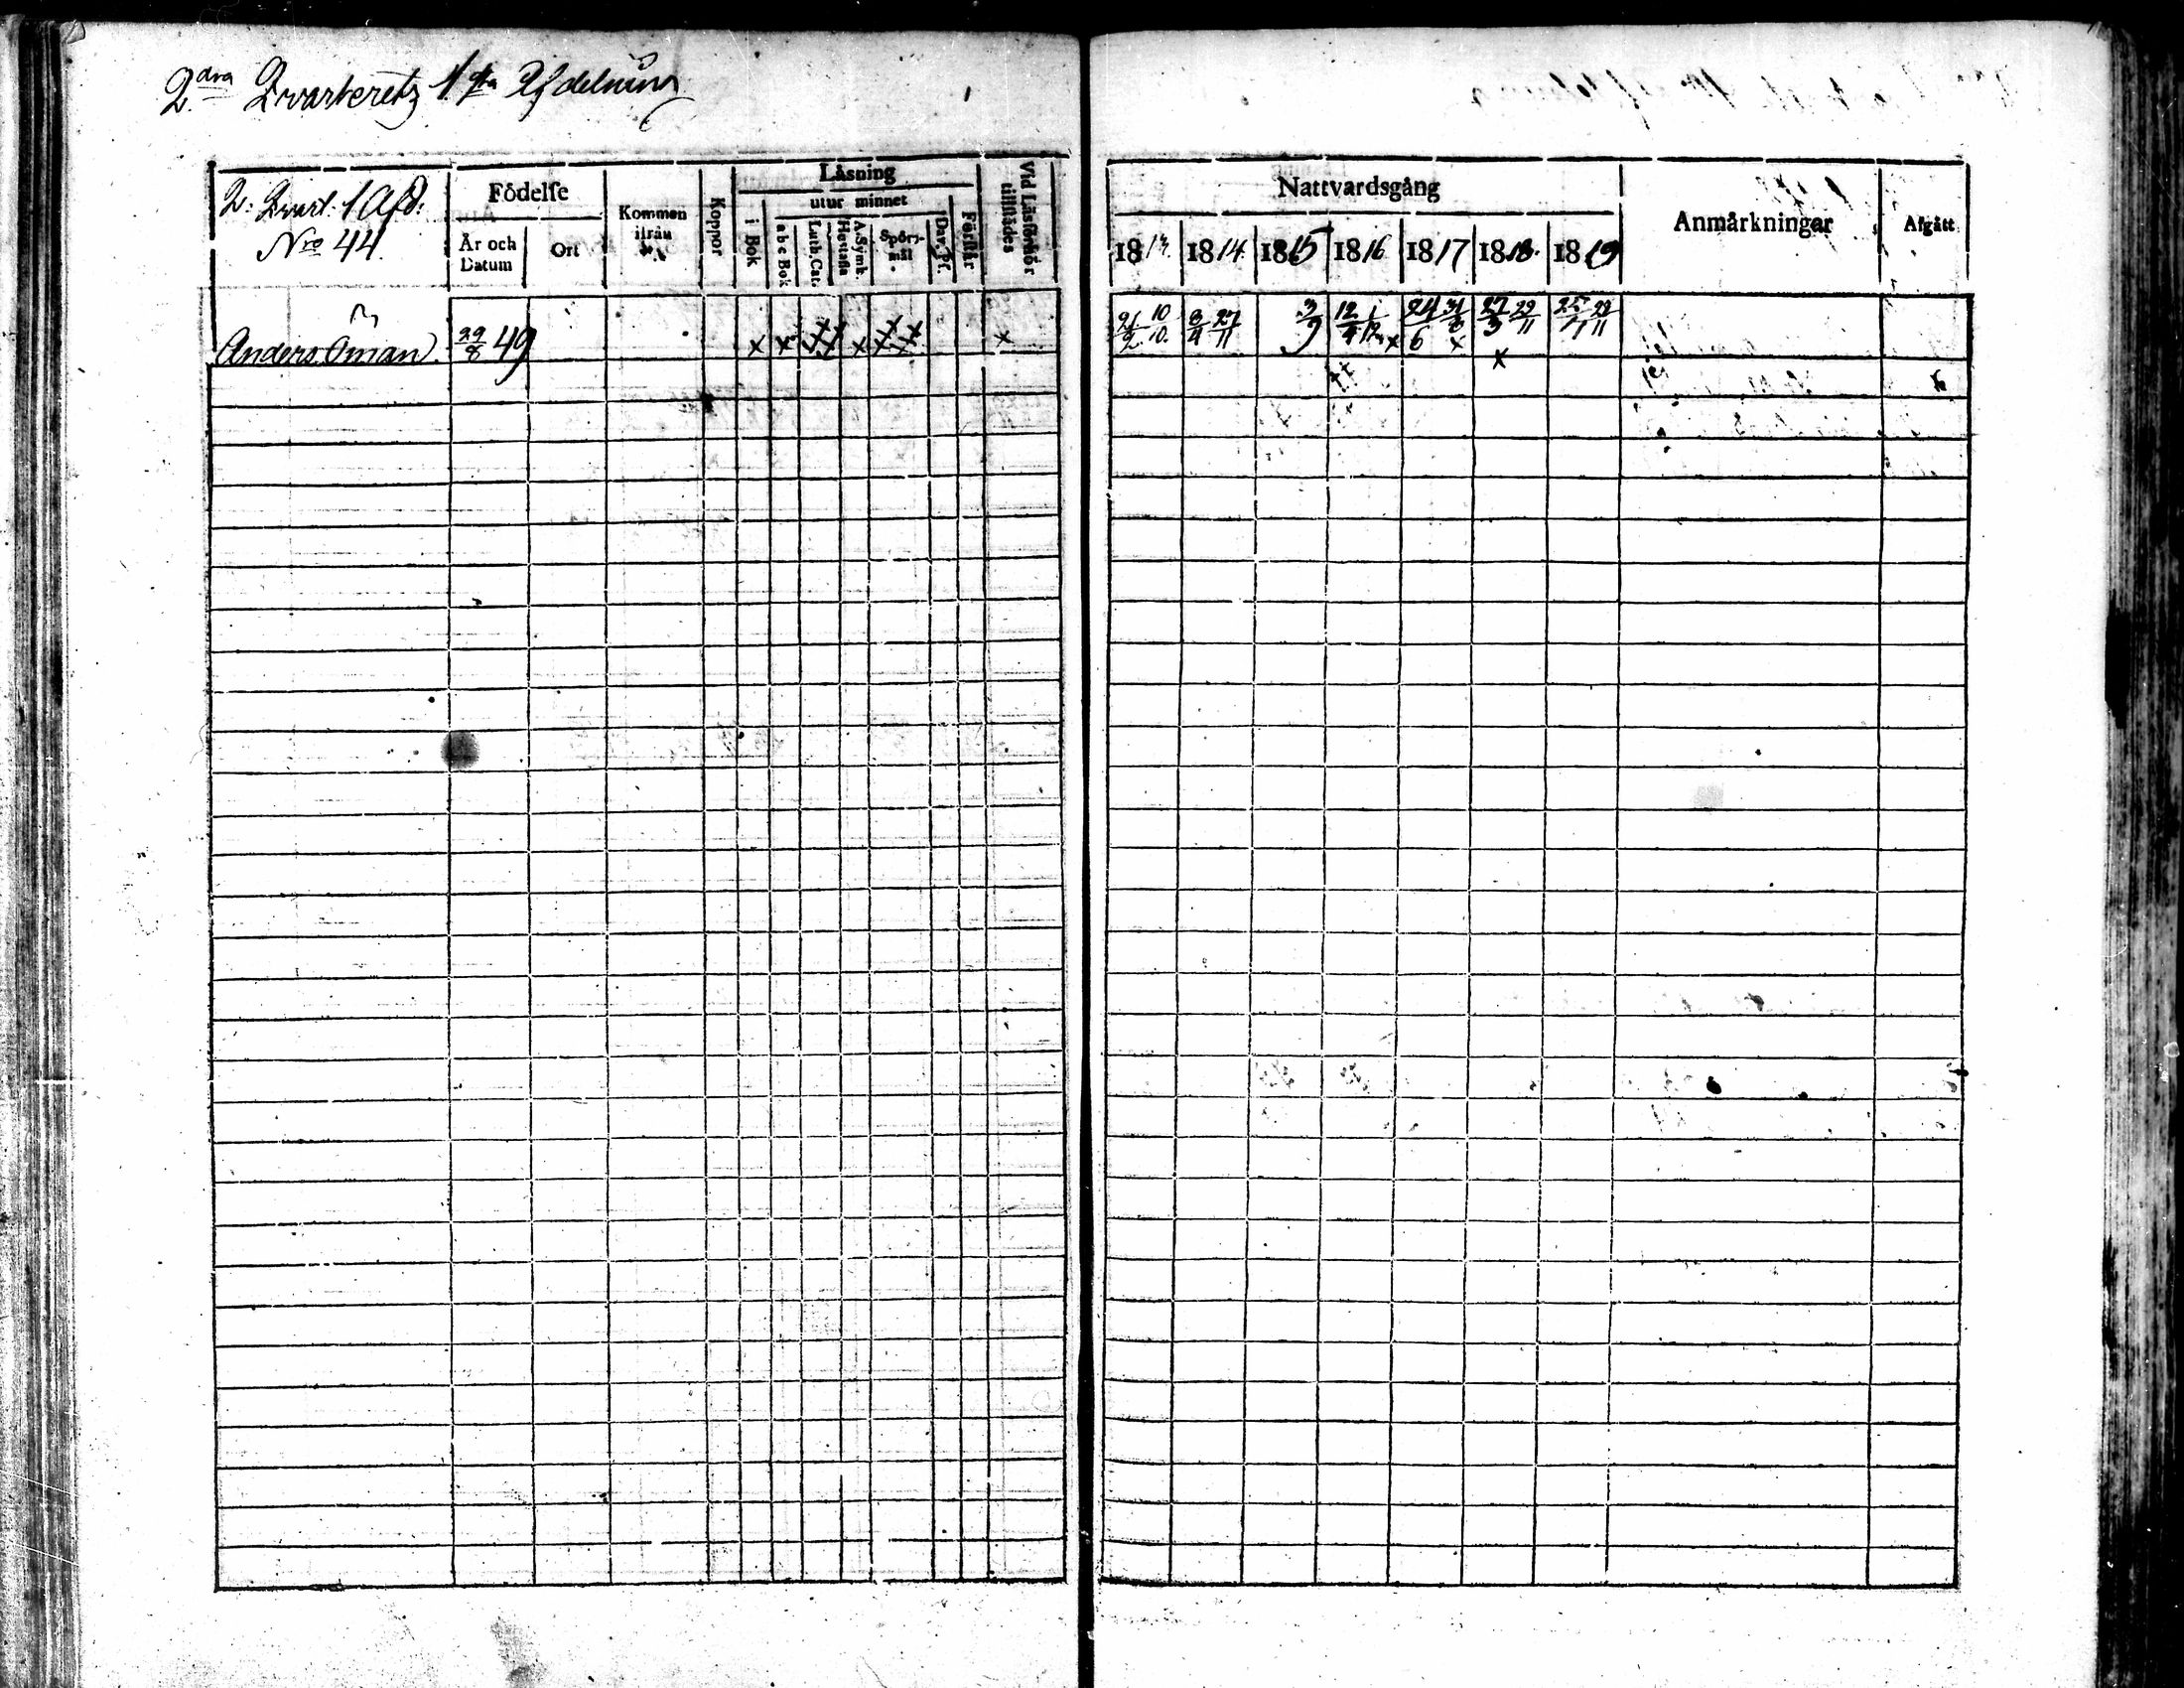 2dra Qvarteretz 1sta Afdelning
2: Qvart. 1 Afd: Födelse Kommen ifrån Koppor Läsning Vid Läsförhör tillstädes
No 44 År och Datum Ort i Bok utur minnet abc Bok Luth. Cat. Hustafla A. Symb. Spörsmål Dav. Ps. Förstår
Anders Öman 29/8 49 x x x x x
Nattvardsgång Anmärkningar Afgått
1813 1814 1815 1816 1817 1818 1819
10/10 3/4 27/11 3/9 12/4 1/12 24/6 31/8 27/3 29/11 25/7
x x x